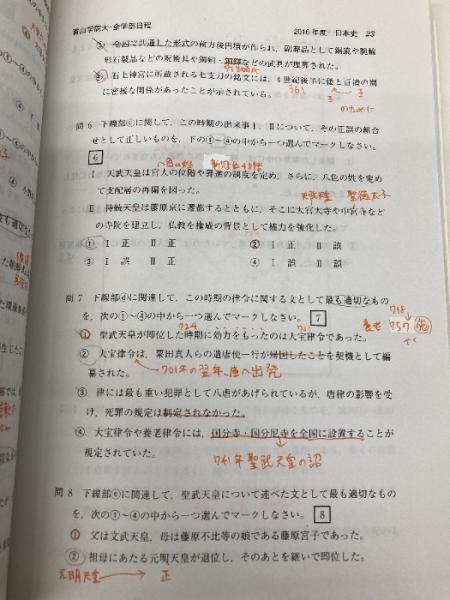 青山学院大-全学部日程 2016年度 日本史 23
③ 全国で共通した形式の前方後円墳が作られ、副葬品として銅鏡や腕輪
形石製品などの呪術具や銅剣・銅鐸などの武具が埋葬された。
石上神宮に所蔵される七支刀の銘文には、4世紀後半に倭と百済の間
に密接な関係があったことが示されている。
問6 下線部ⓒに関して、この時期の出来事Ⅰ、Ⅱについて、その正誤の組合
せとして正しいものを、下の①~④の中から一つ選んでマークしなさい。
6
八色の姓
Ⅰ 天武天皇は官人の位階や昇進の制度を定め、さらに、八色の姓を定め
て支配層の再編を図った。
聖徳太子
Ⅱ 持統天皇は藤原京に遷都するとともに、そこに大官大寺や中宮寺など
の寺院を建立し、仏教を権威の背景として権力を強化した。
① Ⅰ 正 Ⅱ 正 ② Ⅰ 正 Ⅱ 誤
③ Ⅰ 誤 Ⅱ 正 ④ Ⅰ 誤 Ⅱ 誤
問7 下線部ⓓに関連して、この時期の律令に関する文として最も適切なもの
を、次の①~④の中から一つ選んでマークしなさい。 7
718
養老 757
724
① 聖武天皇が即位した時期に効力をもったのは大宝律令であった。
② 大宝律令は、粟田真人らの遣唐使一行が帰国したことを契機として編
纂された。
701年の翌年、唐へ出発
③ 律には最も重い犯罪として八虐があげられているが、唐律の影響を受
け、死罪の規定は制定されなかった。
④ 大宝律令や養老律令には、国分寺・国分尼寺を全国に設置することが
規定されていた。
741年聖武天皇の詔
問8 下線部ⓔに関連して、聖武天皇について述べた文として最も適切なもの
を、次の①~④の中から一つ選んでマークしなさい。 8
① 父は文武天皇、母は藤原不比等の娘である藤原宮子であった。
② 祖母にあたる元明天皇が退位し、そのあとを継いで即位した。
元明天皇 正